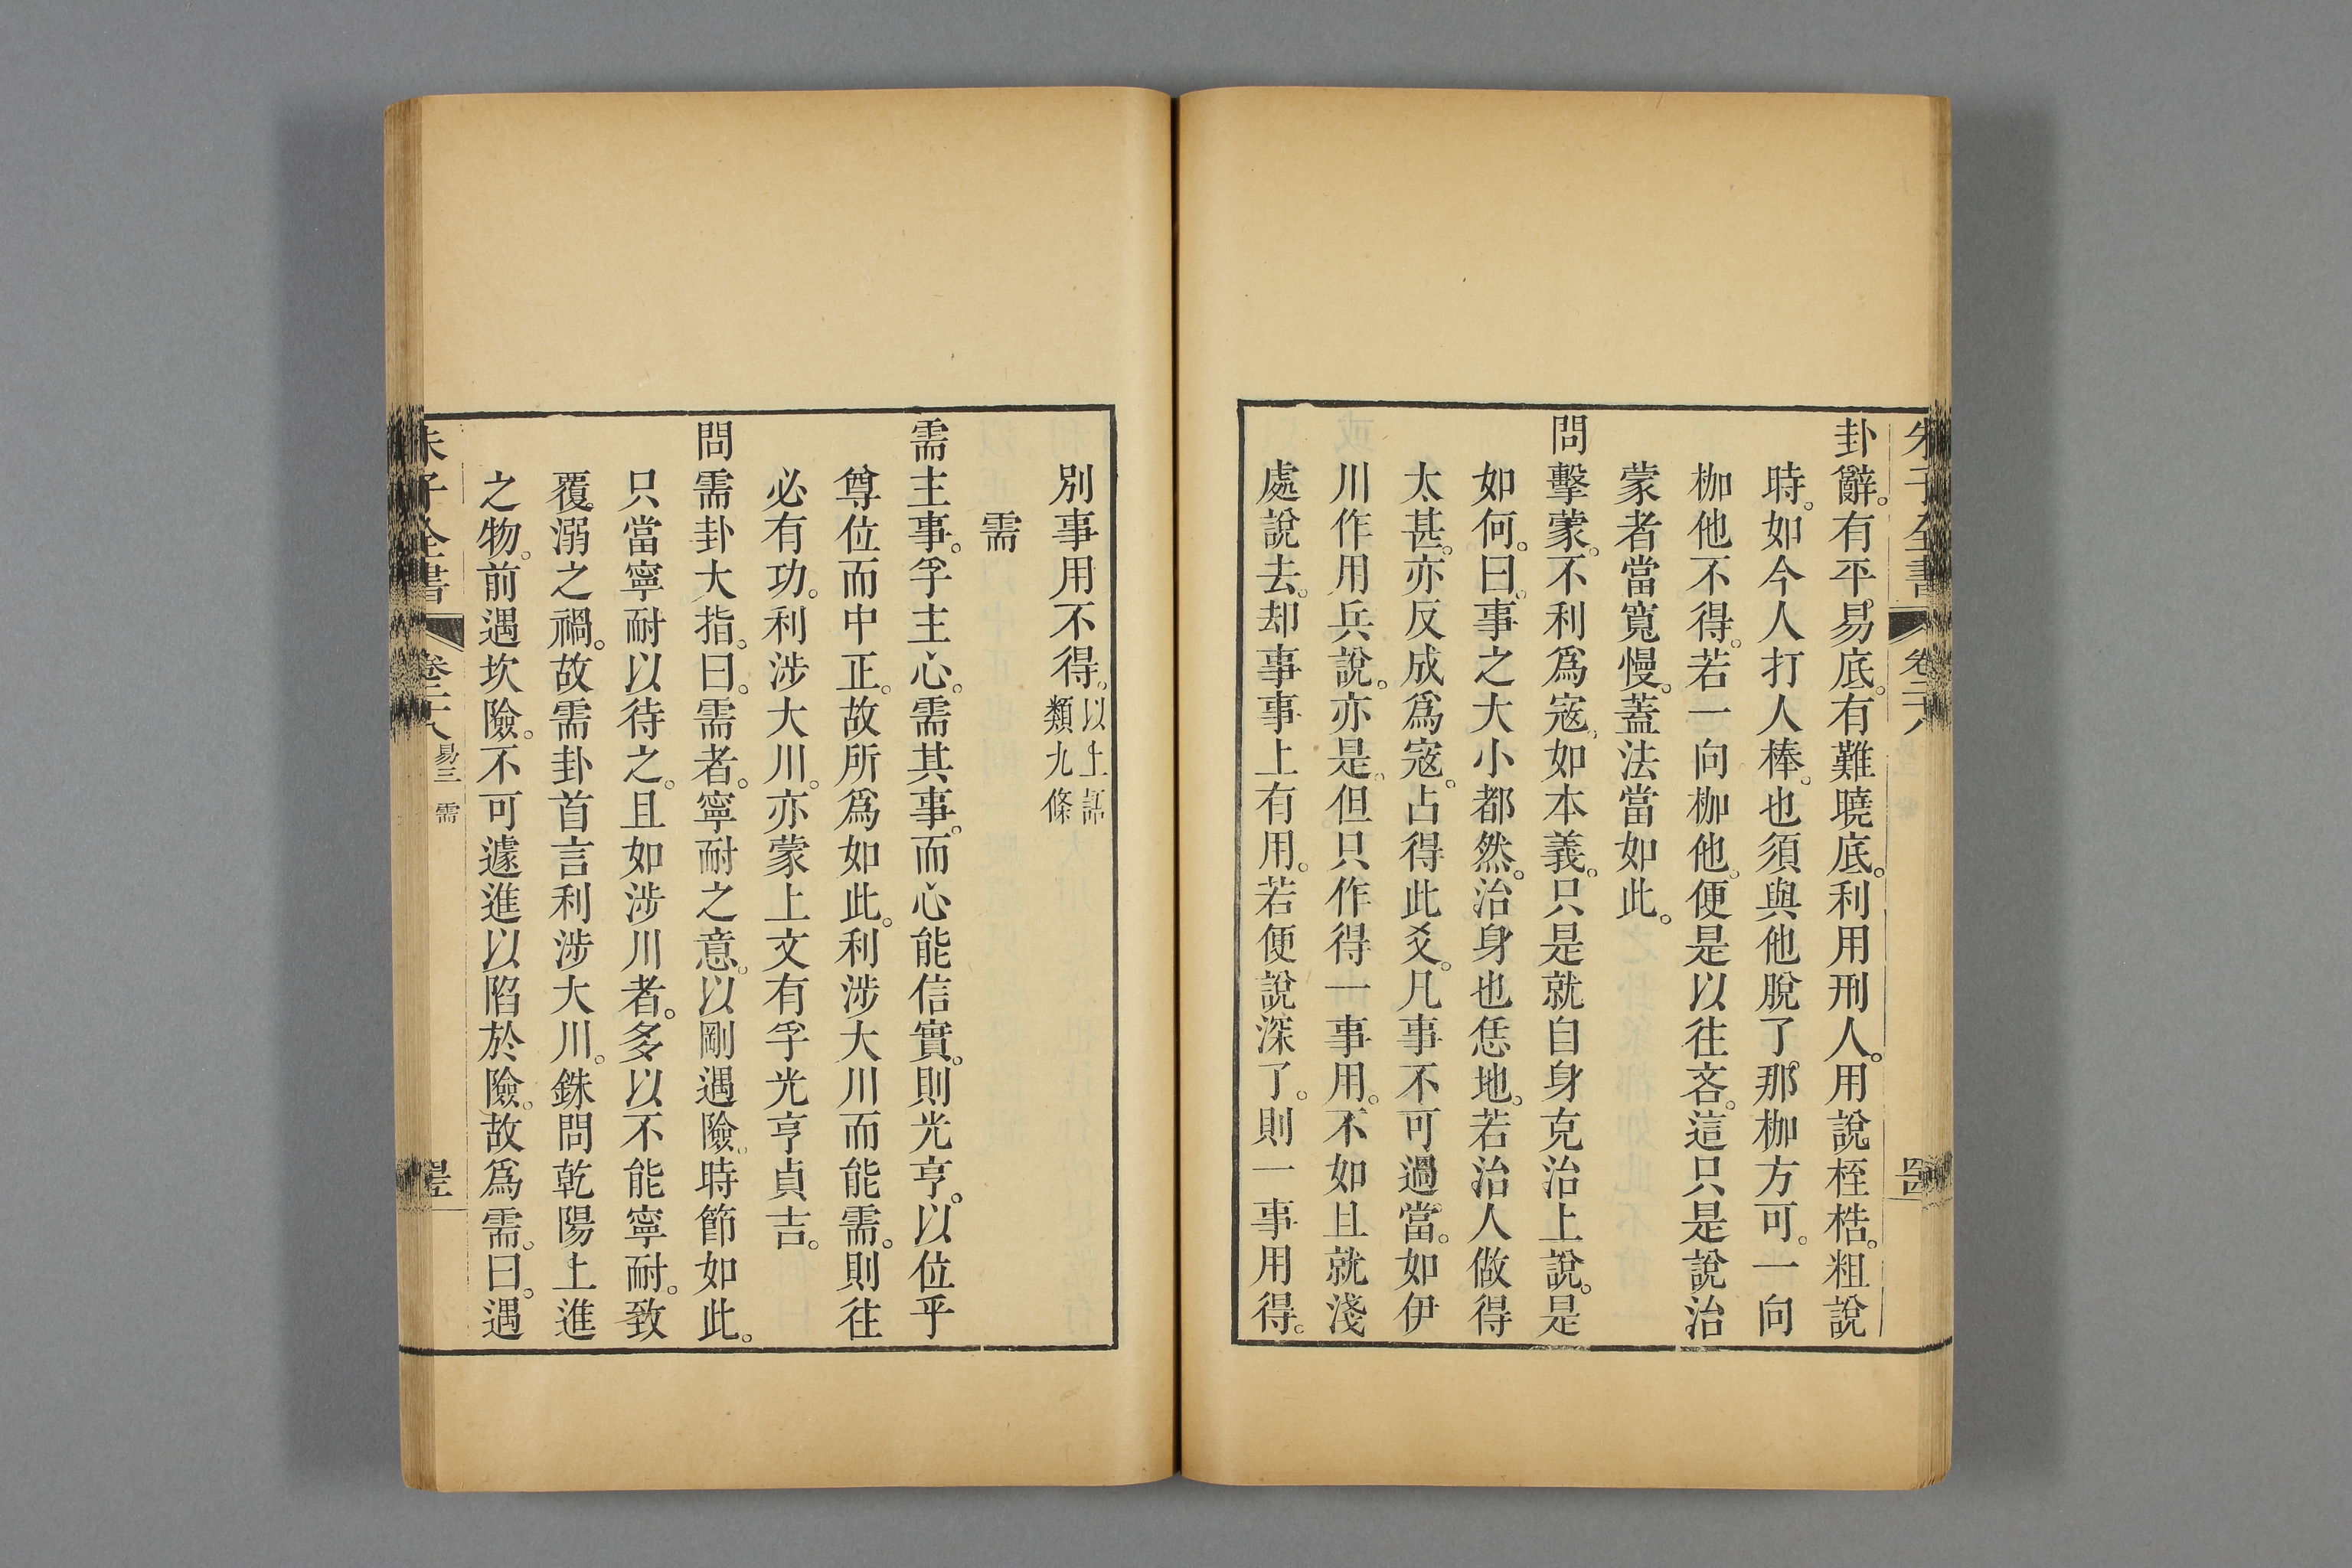 朱子全書 卷二十八
卦辭。有平易底。有難曉底。利用刑人。用說桎梏。粗說
時。如今人打人棒。也須與他脫了那枷方可。一向
枷他不得。若一向枷他。便是以往吝。這只是說治
蒙者當寬慢。蓋法當如此。
問擊蒙。不利爲寇。如本義。只是就自身克治上說。是
如何。曰。事之大小都然。治身也恁地。若治人做得
太甚。亦反成爲寇。占得此爻。凡事不可過當。如伊
川作用兵說。亦是。但只作得一事用。不如且就淺
處說去。却事事上有用。若便說深了。則一事用得。
別事用不得。以上語
類九條
需
需主事。孚主心。需其事。而心能信實。則光亨。以位乎
尊位而中正。故所爲如此。利涉大川而能需。則往
必有功。利涉大川。亦蒙上文有孚光亨貞吉。
問需卦大指。曰。需者。寧耐之意。以剛遇險。時節如此。
只當寧耐以待之。且如涉川者。多以不能寧耐。致
覆溺之禍。故需卦首言利涉大川。銖問乾陽上進
之物。前遇坎險。不可遽進以陷於險。故爲需。曰。遇
朱子全書 卷二十八 易三 需